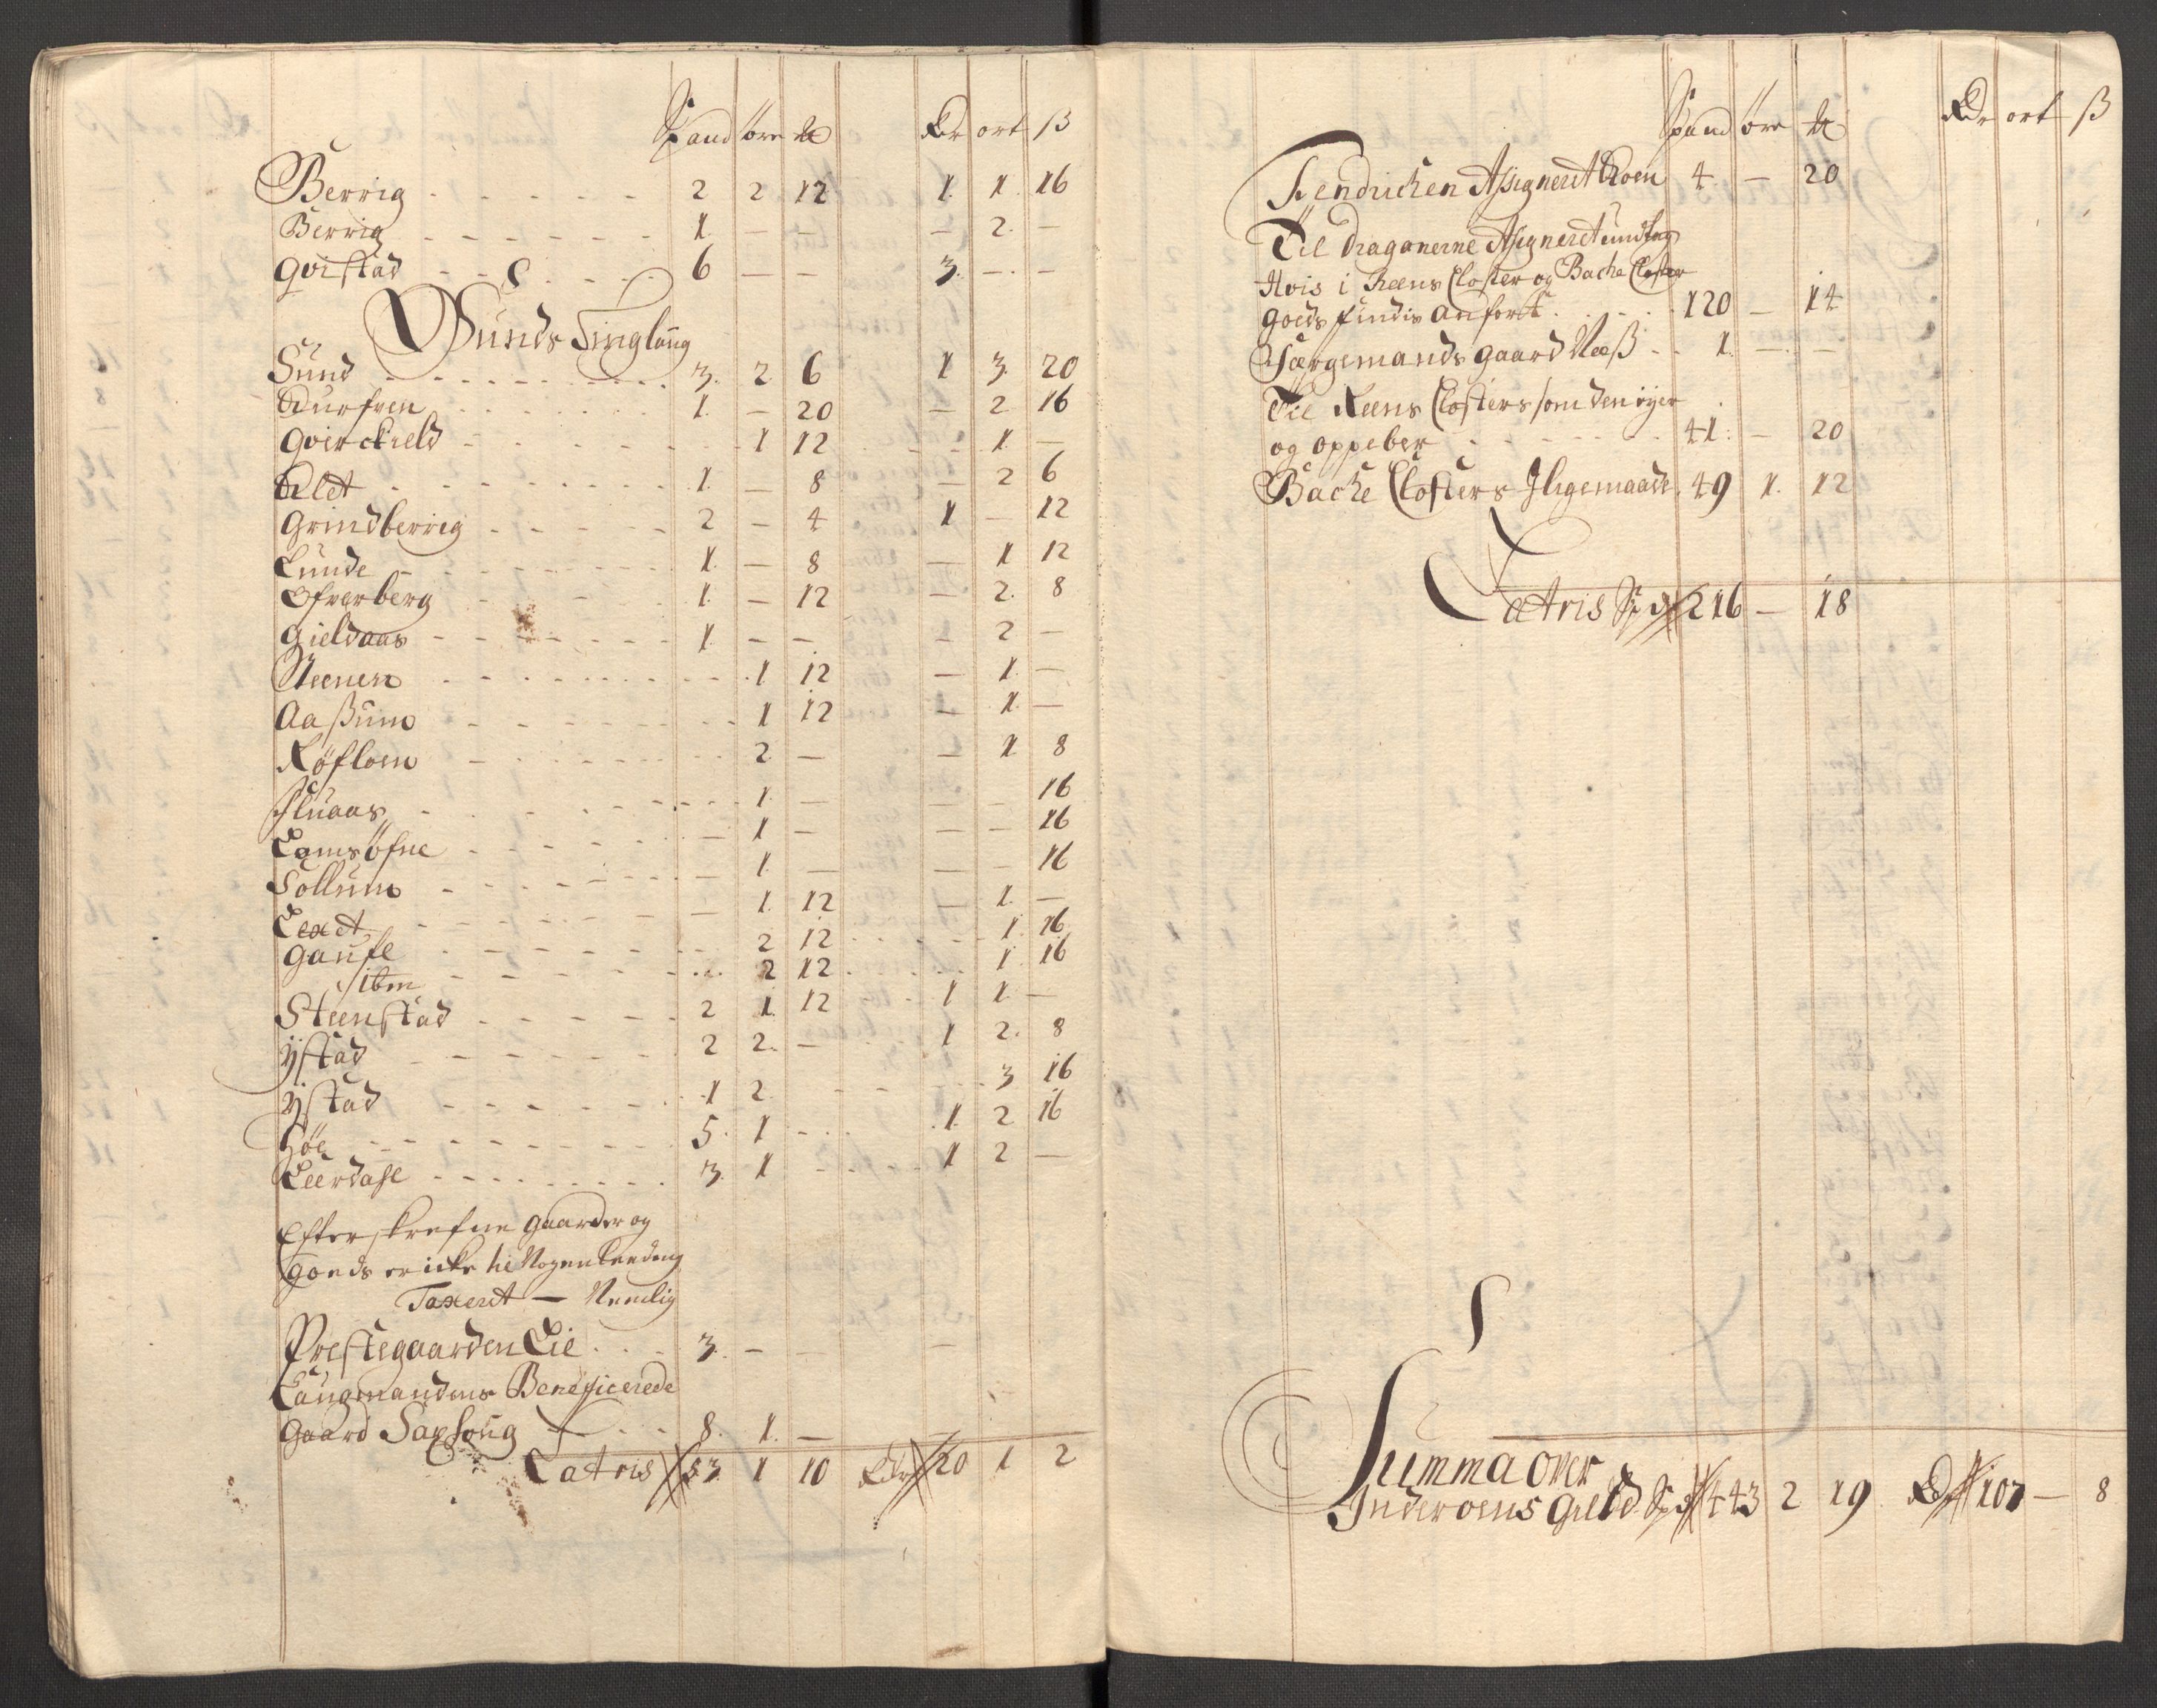 Spand öre ₶ Rdr ort ß
Berrig 2 2 12 1 1 16
Berrig 1 — — — 2 —
Qvistad 6 — — 3 — —
Sunds Tinglaug
Sund 3 2 6 1 3 20
1 — 20 — 2 16
1 12 1 —
1 — 8 — 2 6
Grindberrig 2 — 4 1 — 12
Lunde 1 — 8 — 1 12
Ofverberg 1 — 12 — 2 8
Gieldaas 1 — — — 2 —
Steenen 1 12 — 1 —
Aaßum 1 12 — 1 —
2 — — 1 8
1 — — — 16
— 1 — — — 16
Sollum — 1 — — — 16
— 1 12 — 1 —
2 12 1 16
ibm 2 12 1 16
Steenstad 2 1 12 1 1 —
Ystad 2 2 — 1 2 8
Ystad 1 2 3 16
Höe 5 1 1 2 16
3 1 1 2 —
Efterskrefne gaarder og
goeds er icke til Nogen Leeding
Taxeret — Nemlig
Prestegaarden Lie 3 — — —
Laugmandens Beneficerede
Gaard Saxhoug 8 1 —
Latris 53 1 10 Rdr 20 1 2
Spand öre ₶ Rdr ort ß
Fendrichen Assigneret Roem 4 — 20
Til Dragonerne Assigneret undtag
Hvis i Reens Closter og Bache Closter
goeds findis anfört 120 — 14
Færgemands gaard Næß 1 — —
Til Reens Closters som den eÿer
og oppeber 41 — 20
Bache Closters Iligemaade 49 1 12
Latris Spd 216 — 18
Summa over
Inderoens Gield Spd 443 2 19 Rdr 107 — 8